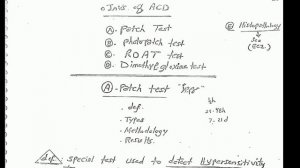 Invs of ACD
Ⓐ- Patch Test
Ⓑ- photopatch test
Ⓒ- ROAT test
Ⓓ- Dimethylglyoxime test
Ⓔ Histopathology
↓
See
(Ecz.)
Ⓐ- Patch test
. def.
. Types
. Methodology
. Results.
48h
7-21d
def special test used to detect Hypersensitivity